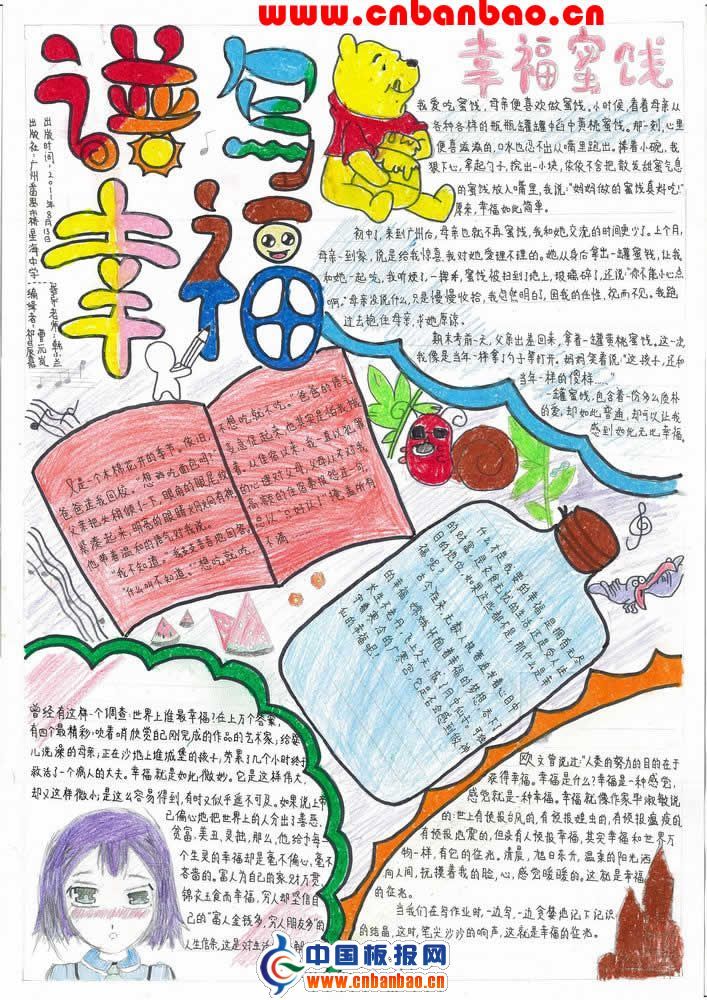 www.cnbanbao.cn
谱写
幸福
出版时间：2011年8月13日
出版社：广州番禺市桥星海中学
幸福蜜饯
我爱吃蜜饯，母亲便喜欢做蜜饯。小时候，看着母亲从
各种各样的瓶瓶罐罐中舀中黄桃蜜饯。那一刻，心里
便喜滋滋的，口水也忍不出从嘴里跑出。捧着小碗，我
狠下心，拿起勺子，挖出一小块，依依不舍把散发甜蜜气息
的蜜饯放入嘴里，我说："妈妈做的蜜饯真好吃！"
原来，幸福如此简单。
初中了，来到广州后，母亲也就不再蜜饯，我和她交流的时间更少了。上个月，
母亲一到家，说是给我惊喜，我对她爱理不理的。她从身后拿出一罐蜜饯，让我
和她一起吃，我听烦了，一挥来，蜜饯被扫到地上，玻璃碎了，还说"你不能小心点
啊。"母亲没说什么，只是慢慢收拾，我忽然明白了，因我的任性，视而不见。我跑
过去抱住母亲，求她原谅。
期末考前一天，父亲出差回来，拿着一罐黄桃蜜饯。这一次
我像是当年一样拿1个勺子等打开。妈妈笑着说："这孩子，还和
当年一样的傻样……"
一罐蜜饯，包含着一份多么质朴
的爱，却如此普通，却可以让我
感到如此无比幸福。
又是一个木棉花开的季节。依旧，
爸爸送我回校。"想吃面包吗？"
父亲把头稍倾一下，眼角的眼
紧凑起来，明亮的眼睛
他带着温和的声气对我说。
"我不知道。"我支支吾吾地回答。
"什么叫不知道。想吃就吃，
不想吃就不吃。"爸爸的语气
什么才是我要的幸福，是拥有无尽
的财富，是衣食无忧的生活，还是令人生
目的地位，如果这些都不是，那什么是幸
福呢？
古今往来，无数人
长生不老丹，飞上九天，成了月中仙子。可独
守着凄凉的广寒宫，它是否会感到做神
仙的幸福呢？
曾经有这样一个调查：世界上谁最幸福？在上万个答案，
有四个最精彩：吹着哨欣赏自己刚完成的作品的艺术家；给婴
儿洗澡的母亲；正在沙地上堆城堡的孩子；劳累了几个小时终于
救活了一个病人的大夫。幸福就是如此微妙。它是这样伟大，
却又这样微小；是这么容易得到，有时又似乎遥不可及。如果说上帝
已偏心地把世界上的人分出了善恶、
贫富、美丑、灵拙，那么，他给予每一
个生灵的幸福却是毫不偏心，毫不
吝啬的。富人为自己的家财万贯
锦衣玉食而幸福，穷人却坚信自
己的"富人金钱多，穷人朋友多"的
人生信条，这是对生活
欧文曾说过："人类的努力的目的在于
获得幸福。幸福是什么？幸福是一种感觉，
感觉就是一种幸福。幸福就像作家毕淑敏说
的：世上有预报台风的，有预报蝗虫的，有预报瘟疫的
有预报地震的，但没有人预报幸福，其实幸福和世界万
物一样，有它的征兆。清晨，旭日东升，温柔的阳光洒
向人间，抚摸着我的脸，心，感觉暖暖的。这就是幸福
的征兆。
当我们在写作业时，一边写，一边贪婪地记下记识
的结晶，这时，笔尖沙沙的响声，这就是幸福的征兆。
中国板报网
www.cnbanbao.cn